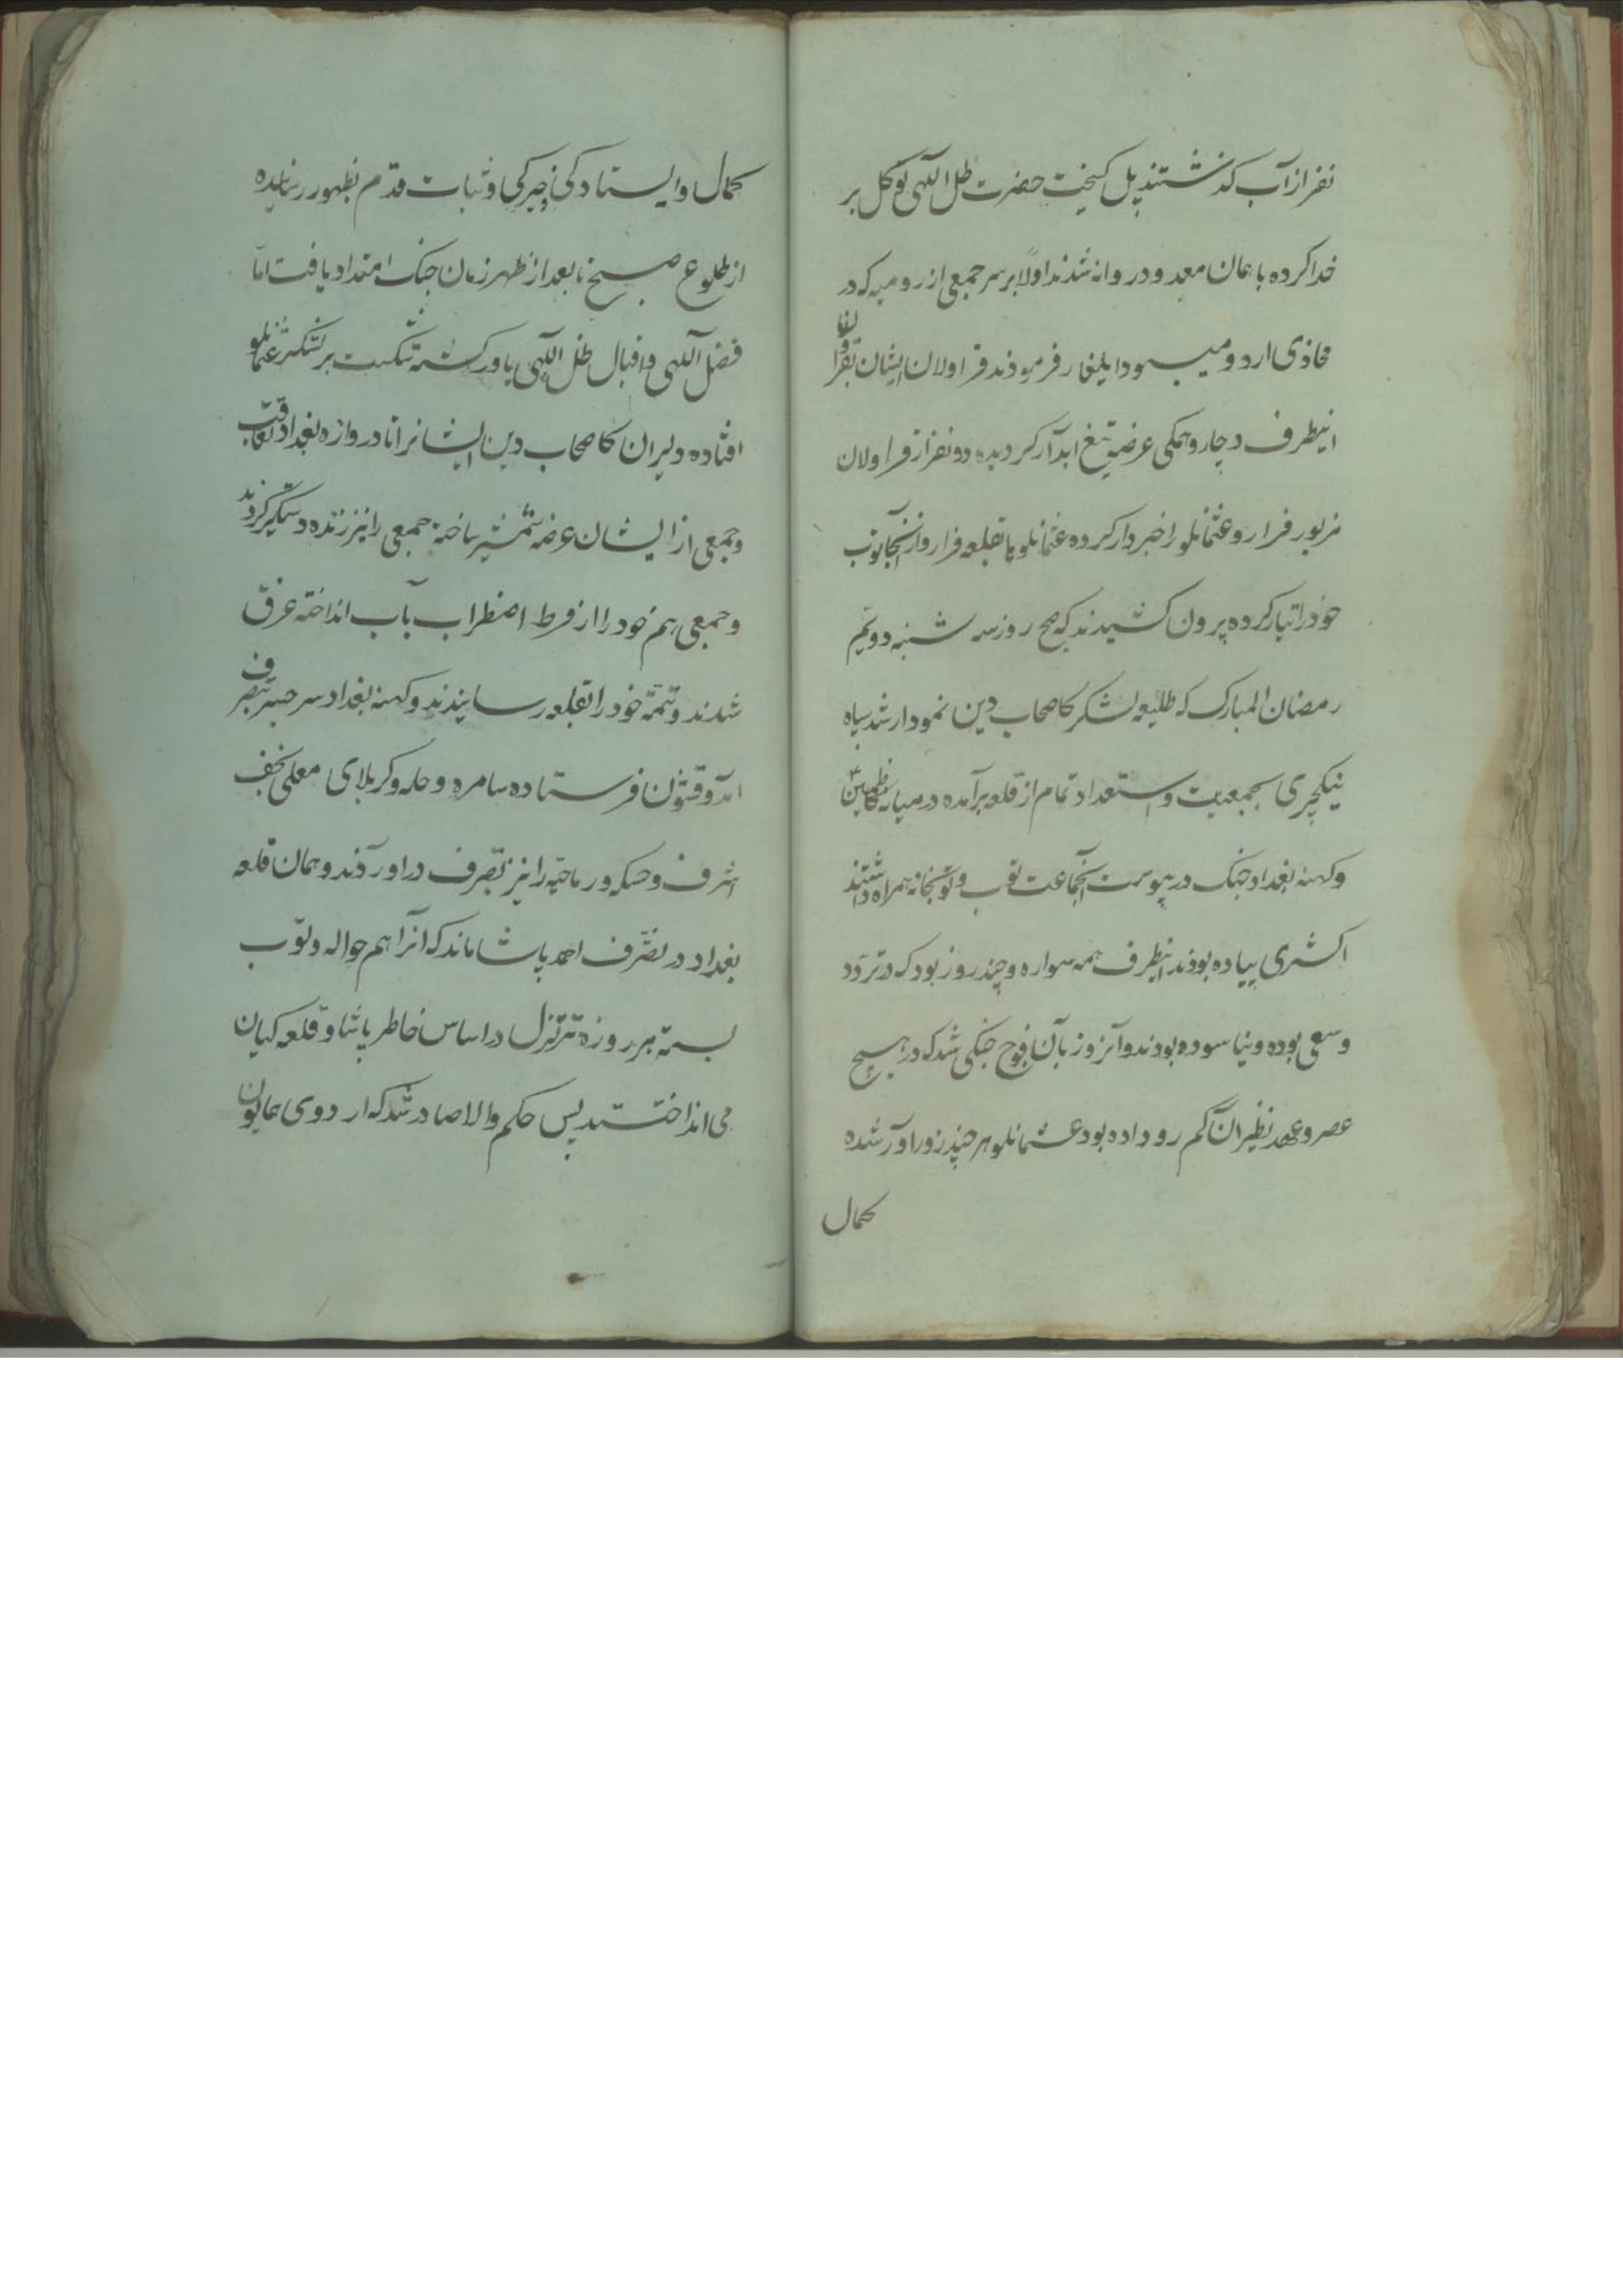 نفر از آب کذشتند پل کسیخت حضرت ظل اللهی توکل بر
خدا کرده با همان معدود روانه شدند اولا بر سر جمعی از رومیه که در
محاذی اردو میبود ایلغار فرمودند قراولان ایشان بقراولان
اینطرف دچار و همکی عرضه تیغ ابدار کردیده دو نفر از قراولان
مزبور فرار و عثمانلو را خبردار کرده عثمانلو تا بقلعه فرار و از آنجا توپ
خود را تیار کرده بیرون کشیدند که صبح روز سه شنبه دویم
رمضان المبارک که طلیعه لشکر کاصحاب دین نمودار شد سپاه
ینکچری بجمعیت و استعداد تمام از قلعه برآمده در میانه کاظمین
و کهنه بغداد جنک درپیوست آنجماعت توپ و توپخانه همراه داشتند
اکثری پیاده بودند اینطرف همه سواره و چند روز بود که در تردد
و سعی بوده و نیاسوده بودند و آنروز بآن فوج جنکی شد که در هیچ
عصر و عهد نظیر آن کم رو داده بود عثمانلو هر چند زوراور شده
کمال
کمال و ایستادکی و خیرکی و ثبات قدم بظهور رسانیده
از طلوع صبح تا بعد از ظهر زمان جنک امتداد یافت اما
فضل اللهی و اقبال ظل اللهی یاور کشته شکست بر لشکر عثمانلو
افتاده دلیران کاصحاب دین ایشانرا تا دروازه بغداد تعاقب
و جمعی از ایشان عرضه شمشیر ساخته جمعی را نیز زنده دستکیر کردند
و جمعی هم خود را از فرط اضطراب بآب انداخته غرق
شدند و تتمه خود را بقلعه رسانیدند و کهنه بغداد سر جسر بتصرف
امد و قشون فرستاده سامره و حله و کربلای معلی نجف
اشرف و حسکه و رماحیه را نیز بتصرف در اوردند و همان قلعه
بغداد در تصرف احمد پاشا ماند که آنرا هم حواله و توپ
بسته هر روزه تزلزل در اساس خاطر پاشا و قلعه کیان
می انداختند پس حکم والا صادر شد که اردوی همایون